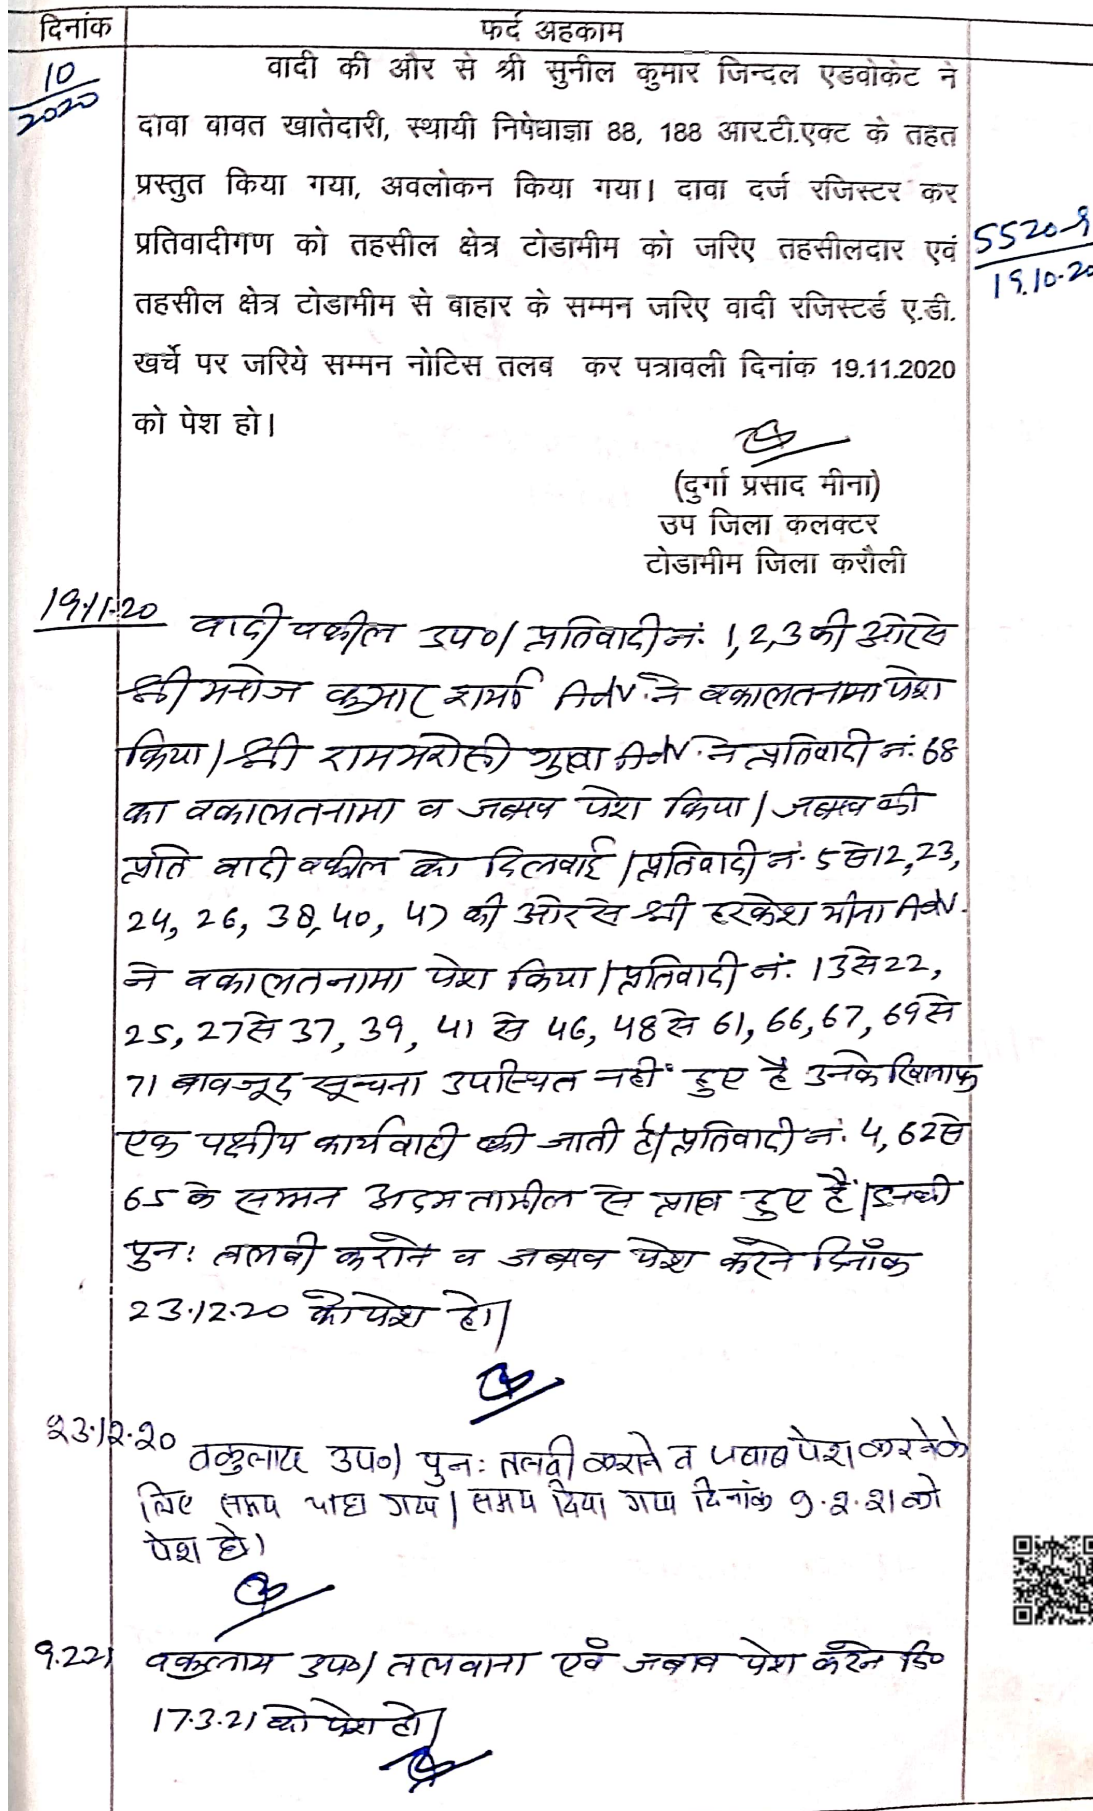 दिनांक फर्द अहकाम
10
2020
वादी की और से श्री सुनील कुमार जिन्दल एडवोकेट ने
दावा वावत खातेदारी, स्थायी निषेधाज्ञा 88, 188 आर.टी.एक्ट के तहत
प्रस्तुत किया गया, अवलोकन किया गया। दावा दर्ज रजिस्टर कर
प्रतिवादीगण को तहसील क्षेत्र टोडाभीम को जरिए तहसीलदार एवं
तहसील क्षेत्र टोडाभीम से बाहार के सम्मन जरिए वादी रजिस्टर्ड ए.डी.
खर्चे पर जरिये सम्मन नोटिस तलब कर पत्रावली दिनांक 19.11.2020
को पेश हो।
5520-9
19.10-20
(दुर्गा प्रसाद मीना)
उप जिला कलक्टर
टोडाभीम जिला करौली
19.11.20 वादी वकील उप०। प्रतिवादी नं. 1,2,3 की ओर से
श्री मनोज कुमार शर्मा Adv. ने वकालतनामा पेश
किया। श्री रामभरोसी गुप्ता Adv. ने प्रतिवादी नं. 68
का वकालतनामा व जबाव पेश किया। जबाव की
प्रति वादी वकील को दिलवाई। प्रतिवादी नं. 5 से 12, 23,
24, 26, 38, 40, 47 की ओर से श्री हरकेश मीना Adv.
ने वकालतनामा पेश किया। प्रतिवादी नं. 13 से 22,
25, 27 से 37, 39, 41 से 46, 48 से 61, 66, 67, 69 से
71 बावजूद सूचना उपस्थित नहीं हुए है उनके खिलाफ
एक पक्षीय कार्यवाही की जाती है। प्रतिवादी नं. 4, 62 से
65 के सम्मन अदम तामील से प्राप्त हुए हैं। इनकी
पुन: तलवी कराने व जबाव पेश करने दिनाँक
23.12.20 को पेश हो।
23.12.20 वकुलाय उप०। पुन: तलवी कराने व जबाब पेश करने के
लिए समय चाहा गया। समय दिया गया दिनांक 9.2.21 को
पेश हो।
9.2.21 वकुलाय उप०। तलवाना एवं जबाव पेश करने दि०
17.3.21 को पेश हो।